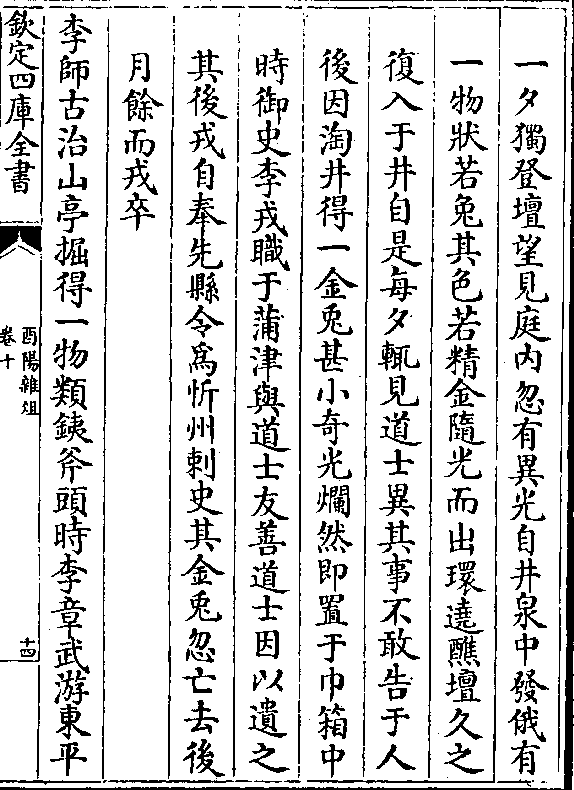 一夕獨登壇望見庭内忽有異光自井泉中發俄有
一物狀若兔其色若精金隨光而出環遶醮壇久之
復入于井自是每夕輒見道士異其事不敢告于人
後因淘井得一金兎甚小奇光爛然即置于巾箱中
時御史李戎職于蒲津與道士友善道士因以遺之
其後戎自奉先縣令爲忻州刺史其金兎忽亡去後
月餘而戎卒
李師古治山亭掘得一物類鐵斧頭時李章武游東平
欽定四庫全書
酉陽雜俎
卷十
十四